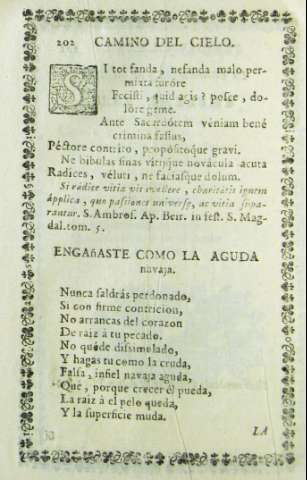 202 CAMINO DEL CIELO.
SI tot fanda, nefanda malo per-
mixta furore
Fecisti, quid agis? posce, do-
lore geme.
Ante Sacerdotem veniam bené
crimina fassus,
Péctore contrito, propósitoque gravi.
Ne bibulas sinas utrinque novácula acuta
Radices, véluti, ne faciasque dolum.
Si rádice vitia vis evellere, charitatis ignem
ápplica, quo passiones universæ, ac vitia sepa-
rantur. S. Ambros. Ap. Beir. in fest. S. Mag-
dal. tom. 5.
ENGAñASTE COMO LA AGUDA
navaja.
Nunca saldrás perdonado,
Si con firme contricion,
No arrancas del corazon
De raiz á tu pecado.
No quéde dissimulado,
Y hagas tu como la cruda,
Falsa, infiel navaja aguda,
Que, porque crecer él pueda,
La raiz á el pelo queda,
Y la superficie muda.
LA